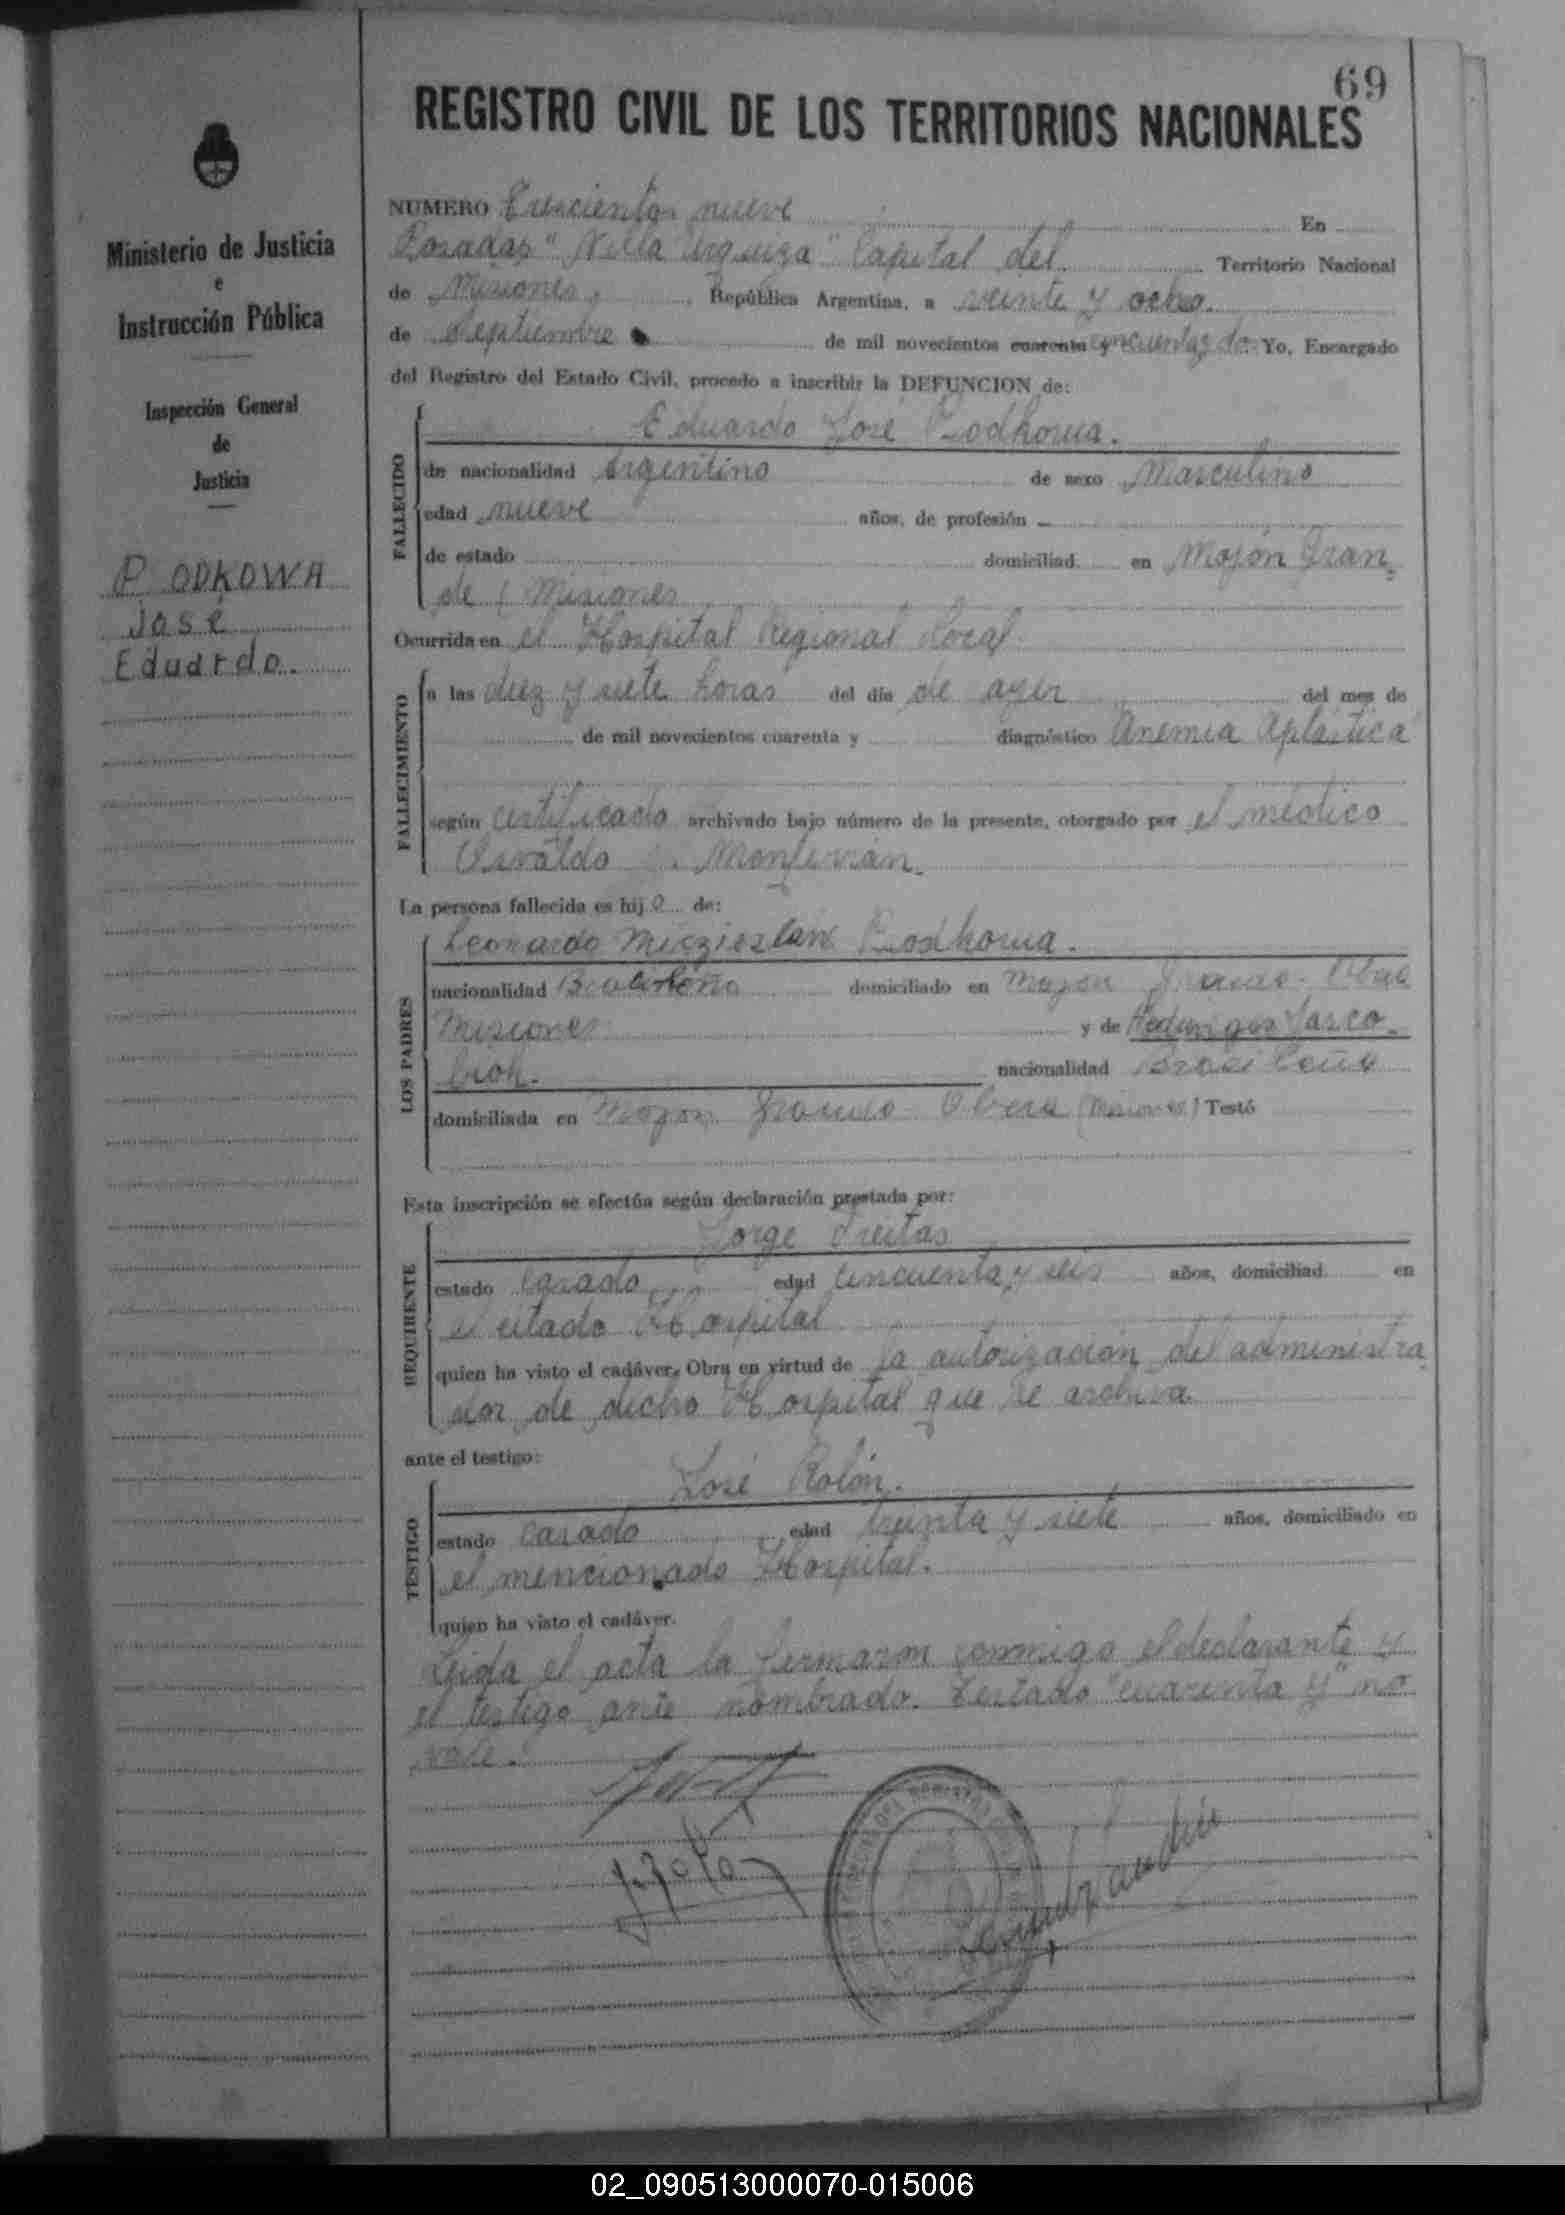 69
REGISTRO CIVIL DE LOS TERRITORIOS NACIONALES
Ministerio de Justicia
e
Instrucción Pública
Inspección General
de
Justicia
PODKOWA
José
Eduardo.
NUMERO Trescientos nueve En
Posadas "Villa Urquiza" Capital del Territorio Nacional
de Misiones, República Argentina, a veinte y ocho.
de Septiembre de mil novecientos cuarenta y cincuenta y dos Yo, Encargado
del Registro del Estado Civil, procedo a inscribir la DEFUNCION de:
FALLECIDO
Eduardo José Podkowa.
de nacionalidad Argentino de sexo Masculino
edad nueve años, de profesión -
de estado domiciliad en Mojón Gran
de (Misiones
Ocurrida en el Hospital Regional local.
FALLECIMIENTO
a las diez y siete horas del día de ayer del mes de
de mil novecientos cuarenta y diagnóstico Anemia Aplástica
según certificado archivado bajo número de la presente, otorgado por el médico
Osvaldo Monferrán.
La persona fallecida es hijo de:
LOS PADRES
Leonardo Podkowa.
nacionalidad domiciliado en Mojón Grande - Oberá
Misiones y de
nacionalidad Brasileña
domiciliada en Mojón Grande Oberá (Misiones) Testó
Esta inscripción se efectúa según declaración prestada por:
REQUIRENTE
Jorge Freitas
estado casado edad cincuenta y seis años, domiciliad en
el citado Hospital
quien ha visto el cadáver. Obra en virtud de la autorización del administra
dor de dicho Hospital que se archiva.
ante el testigo:
TESTIGO
José Rolón.
estado casado edad treinta y siete años, domiciliado en
el mencionado Hospital.
quien ha visto el cadáver.
Leida el acta la firmaron conmigo el declarante y
el testigo ante nombrado. Testado "cuarenta y" no
vale.
02_090513000070-015006